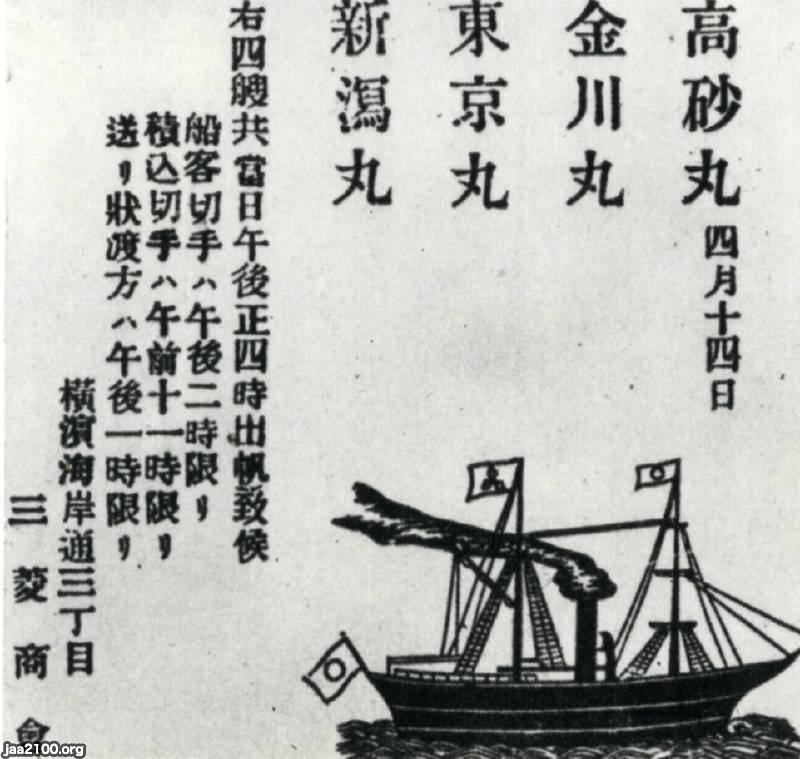 高砂丸 四月十四日
金川丸
東京丸
新潟丸
右四艘共當日午後正四時出帆致候
船客切手ハ午後二時限リ
積込切手ハ午前十一時限リ
送リ狀渡方ハ午後一時限リ
橫濱海岸通三丁目
三菱商會
jaa2100.org